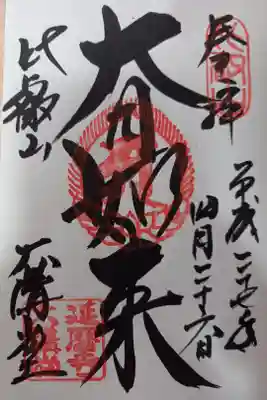 奉拝
平成二十七年
四月二十六日
大日如来
比叡山
大講堂
延暦寺